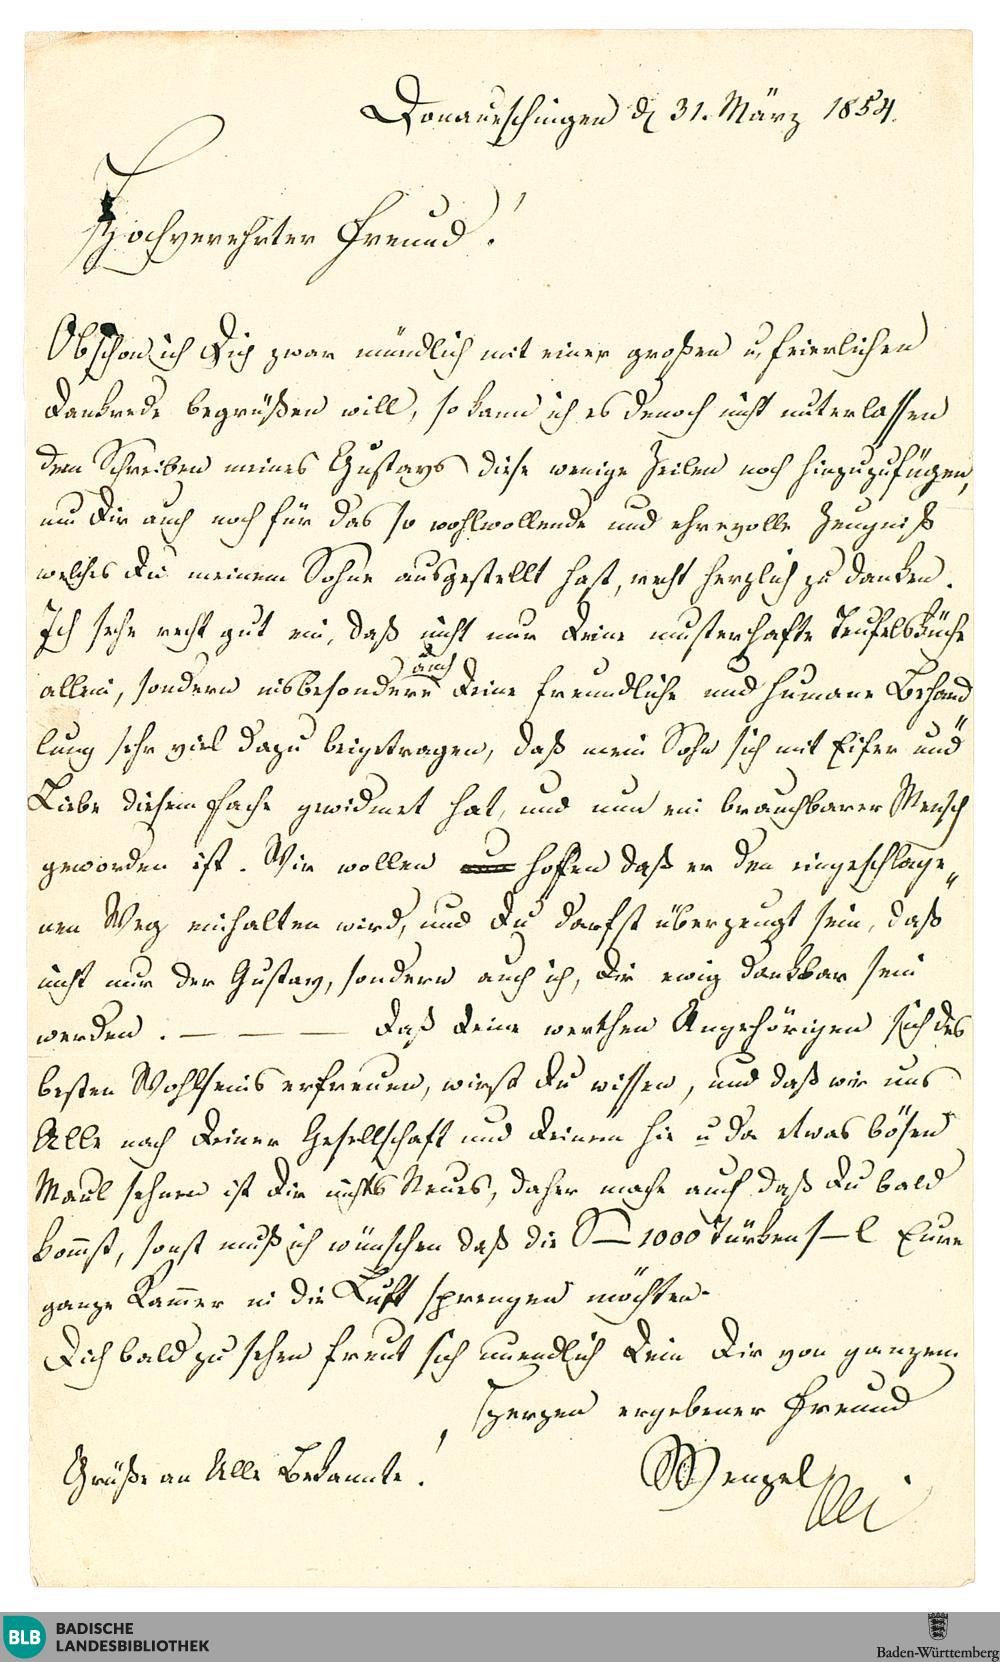 Donaueschingen d. 31. März 1854.
Hochverehrter Freund!
Obschon ich Dich zwar mündlich mit einer großen u. feierlichen
Dankrede begrüßen will, so kann ich es denoch nicht unterlassen
dem Schreiben meines Gustavs diese wenige Zeilen noch hinzuzufügen,
um Dir auch noch für das so wohlwollende und ehrevolle Zeugniß
welches Du meinem Sohne ausgestellt hast, recht herzlich zu danken.
Ich sehe recht gut ein, daß nicht nur Deine musterhafte Teufelsküche
allein, sondern insbesondere auch Deine freundliche und humane Behand
lung sehr viel dazu beigetragen, daß mein Sohn sich mit Eifer und
Liebe diesem Fache gewidmet hat, und nun ein brauchbarer Mensch
geworden ist. Wir wollen hoffen daß er den eingeschlage„
nen Weg einhalten wird, und Du darfst überzeugt sein, daß
nicht nur der Gustav, sondern auch ich, Dir ewig dankbar sein
werden. — — — Daß Deine werthen Angehörigen sich des
besten Wohlseins erfreuen, wirst Du wissen, und daß wir uns
Alle nach Deiner Gesellschaft und Deinem hie u da etwas bösen
Maul sehnen ist Dir nichts Neues, daher mache auch daß Du bald
kommst, sonst muß ich wünschen daß die S— 1000 Türken s—l Eure
ganze Kammer in die Luft sprengen möchten.
Dich bald zu sehen freut sich unendlich Dein Dir von ganzem
Herzen ergebener Freund
Grüße an Alle Bekannte!
Wenzel
BLB BADISCHE
LANDESBIBLIOTHEK
Baden-Württemberg